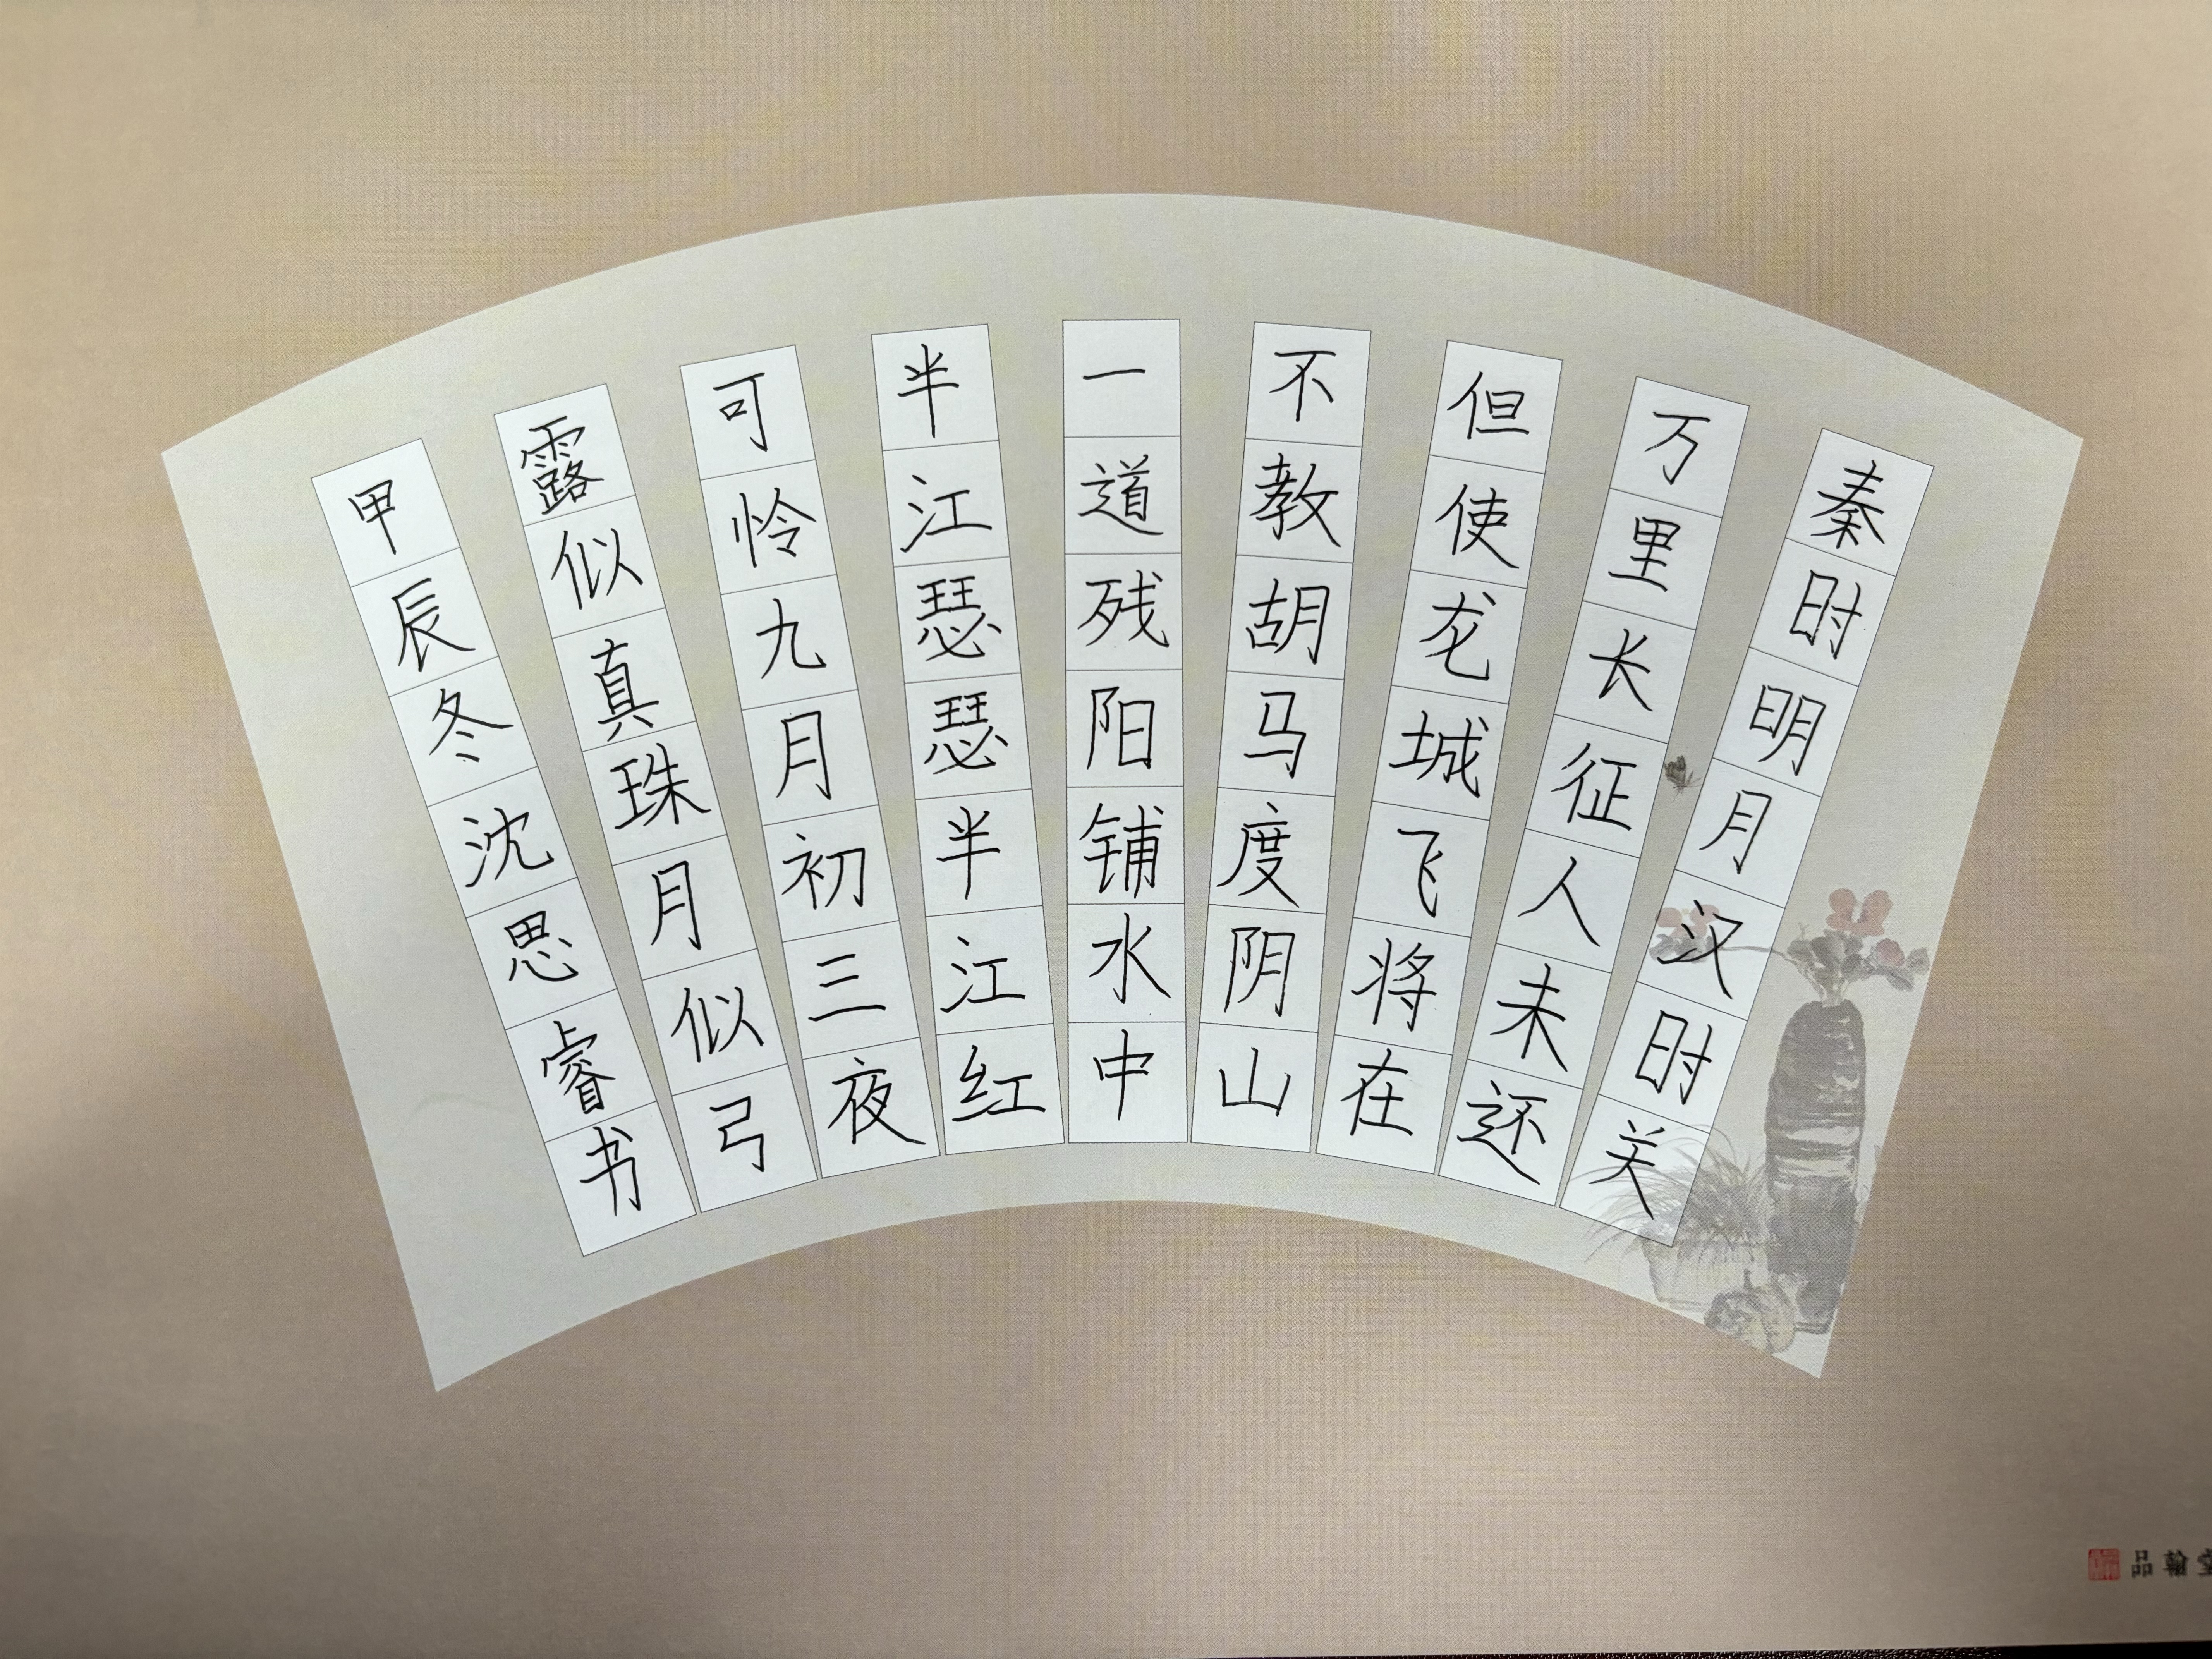 秦时明月汉时关
万里长征人未还
但使龙城飞将在
不教胡马度阴山
一道残阳铺水中
半江瑟瑟半江红
可怜九月初三夜
露似真珠月似弓
甲辰冬沈思睿书
品翰堂